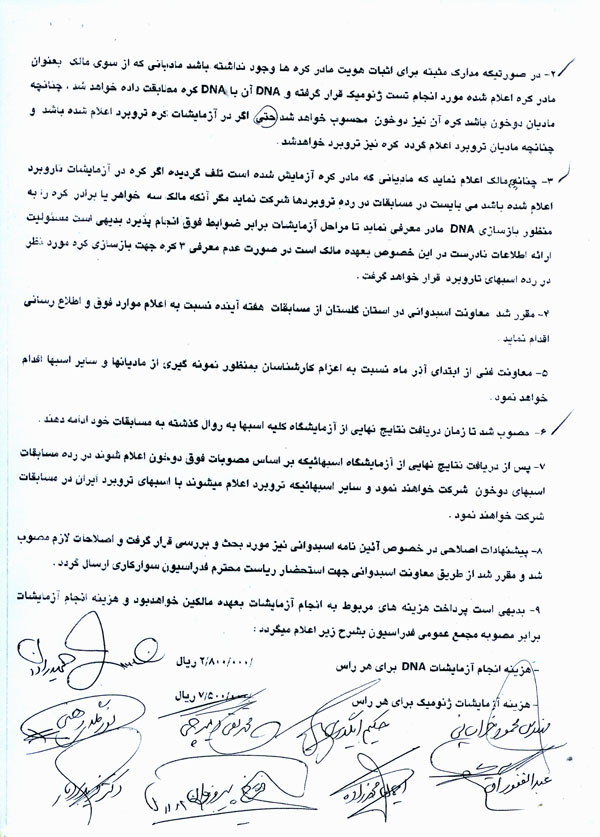 ۲- در صورتیکه مدارک مثبته برای اثبات هویت مادر کره ها وجود نداشته باشد مادیانی که از سوی مالک بعنوان
مادر کره اعلام شده مورد انجام تست ژنومیک قرار گرفته و DNA آن با DNA کره مطابقت داده خواهد شد ، چنانچه
مادیان دوخون باشد کره آن نیز دوخون محسوب خواهد شد حتی اگر در آزمایشات کره تروبرد اعلام شده باشد و
چنانچه مادیان تروبرد اعلام گردد کره نیز تروبرد خواهدشد .
۳- چنانچه مالک اعلام نماید که مادیانی که مادر کره آزمایش شده است تلف گردیده اگر کره در آزمایشات تاروبرد
اعلام شده باشد می بایست در مسابقات در رده تروبردها شرکت نماید مگر آنکه مالک سه خواهر یا برادر کره را به
منظور بازسازی DNA مادر معرفی نماید تا مراحل آزمایشات برابر ضوابط فوق انجام پذیرد بدیهی است مسئولیت
ارائه اطلاعات نادرست در این خصوص بعهده مالک است در صورت عدم معرفی ۳ کره جهت بازسازی کره مورد نظر
در رده اسبهای تاروبرد قرار خواهد گرفت .
۴- مقرر شد معاونت اسبدوانی در استان گلستان از مسابقات هفته آینده نسبت به اعلام موارد فوق و اطلاع رسانی
اقدام نماید .
۵- معاونت فنی از ابتدای آذر ماه نسبت به اعزام کارشناسان بمنظور نمونه گیری از مادیانها و سایر اسبها اقدام
خواهد نمود .
۶- مصوب شد تا زمان دریافت نتایج نهایی از آزمایشگاه کلیه اسبها به روال گذشته به مسابقات خود ادامه دهند .
۷- پس از دریافت نتایج نهایی از آزمایشگاه اسبهائیکه بر اساس مصوبات فوق دوخون اعلام شوند در رده مسابقات
اسبهای دوخون شرکت خواهند نمود و سایر اسبهائیکه تروبرد اعلام میشوند با اسبهای تروبرد ایران در مسابقات
شرکت خواهند نمود .
۸- پیشنهادات اصلاحی در خصوص آئین نامه اسبدوانی نیز مورد بحث و بررسی قرار گرفت و اصلاحات لازم مصوب
شد و مقرر شد از طریق معاونت اسبدوانی جهت استحضار ریاست محترم فدراسیون سوارکاری ارسال گردد .
۹- بدیهی است پرداخت هزینه های مربوط به انجام آزمایشات بعهده مالکین خواهدبود و هزینه انجام آزمایشات
برابر مصوبه مجمع عمومی فدراسیون بشرح زیر اعلام میگردد :
- هزینه انجام آزمایشات DNA برای هر راس ۲/۸۰۰/۰۰۰/ ریال
- هزینه آزمایشات ژنومیک برای هر راس ۷/۵۰۰/۰۰۰ ریال